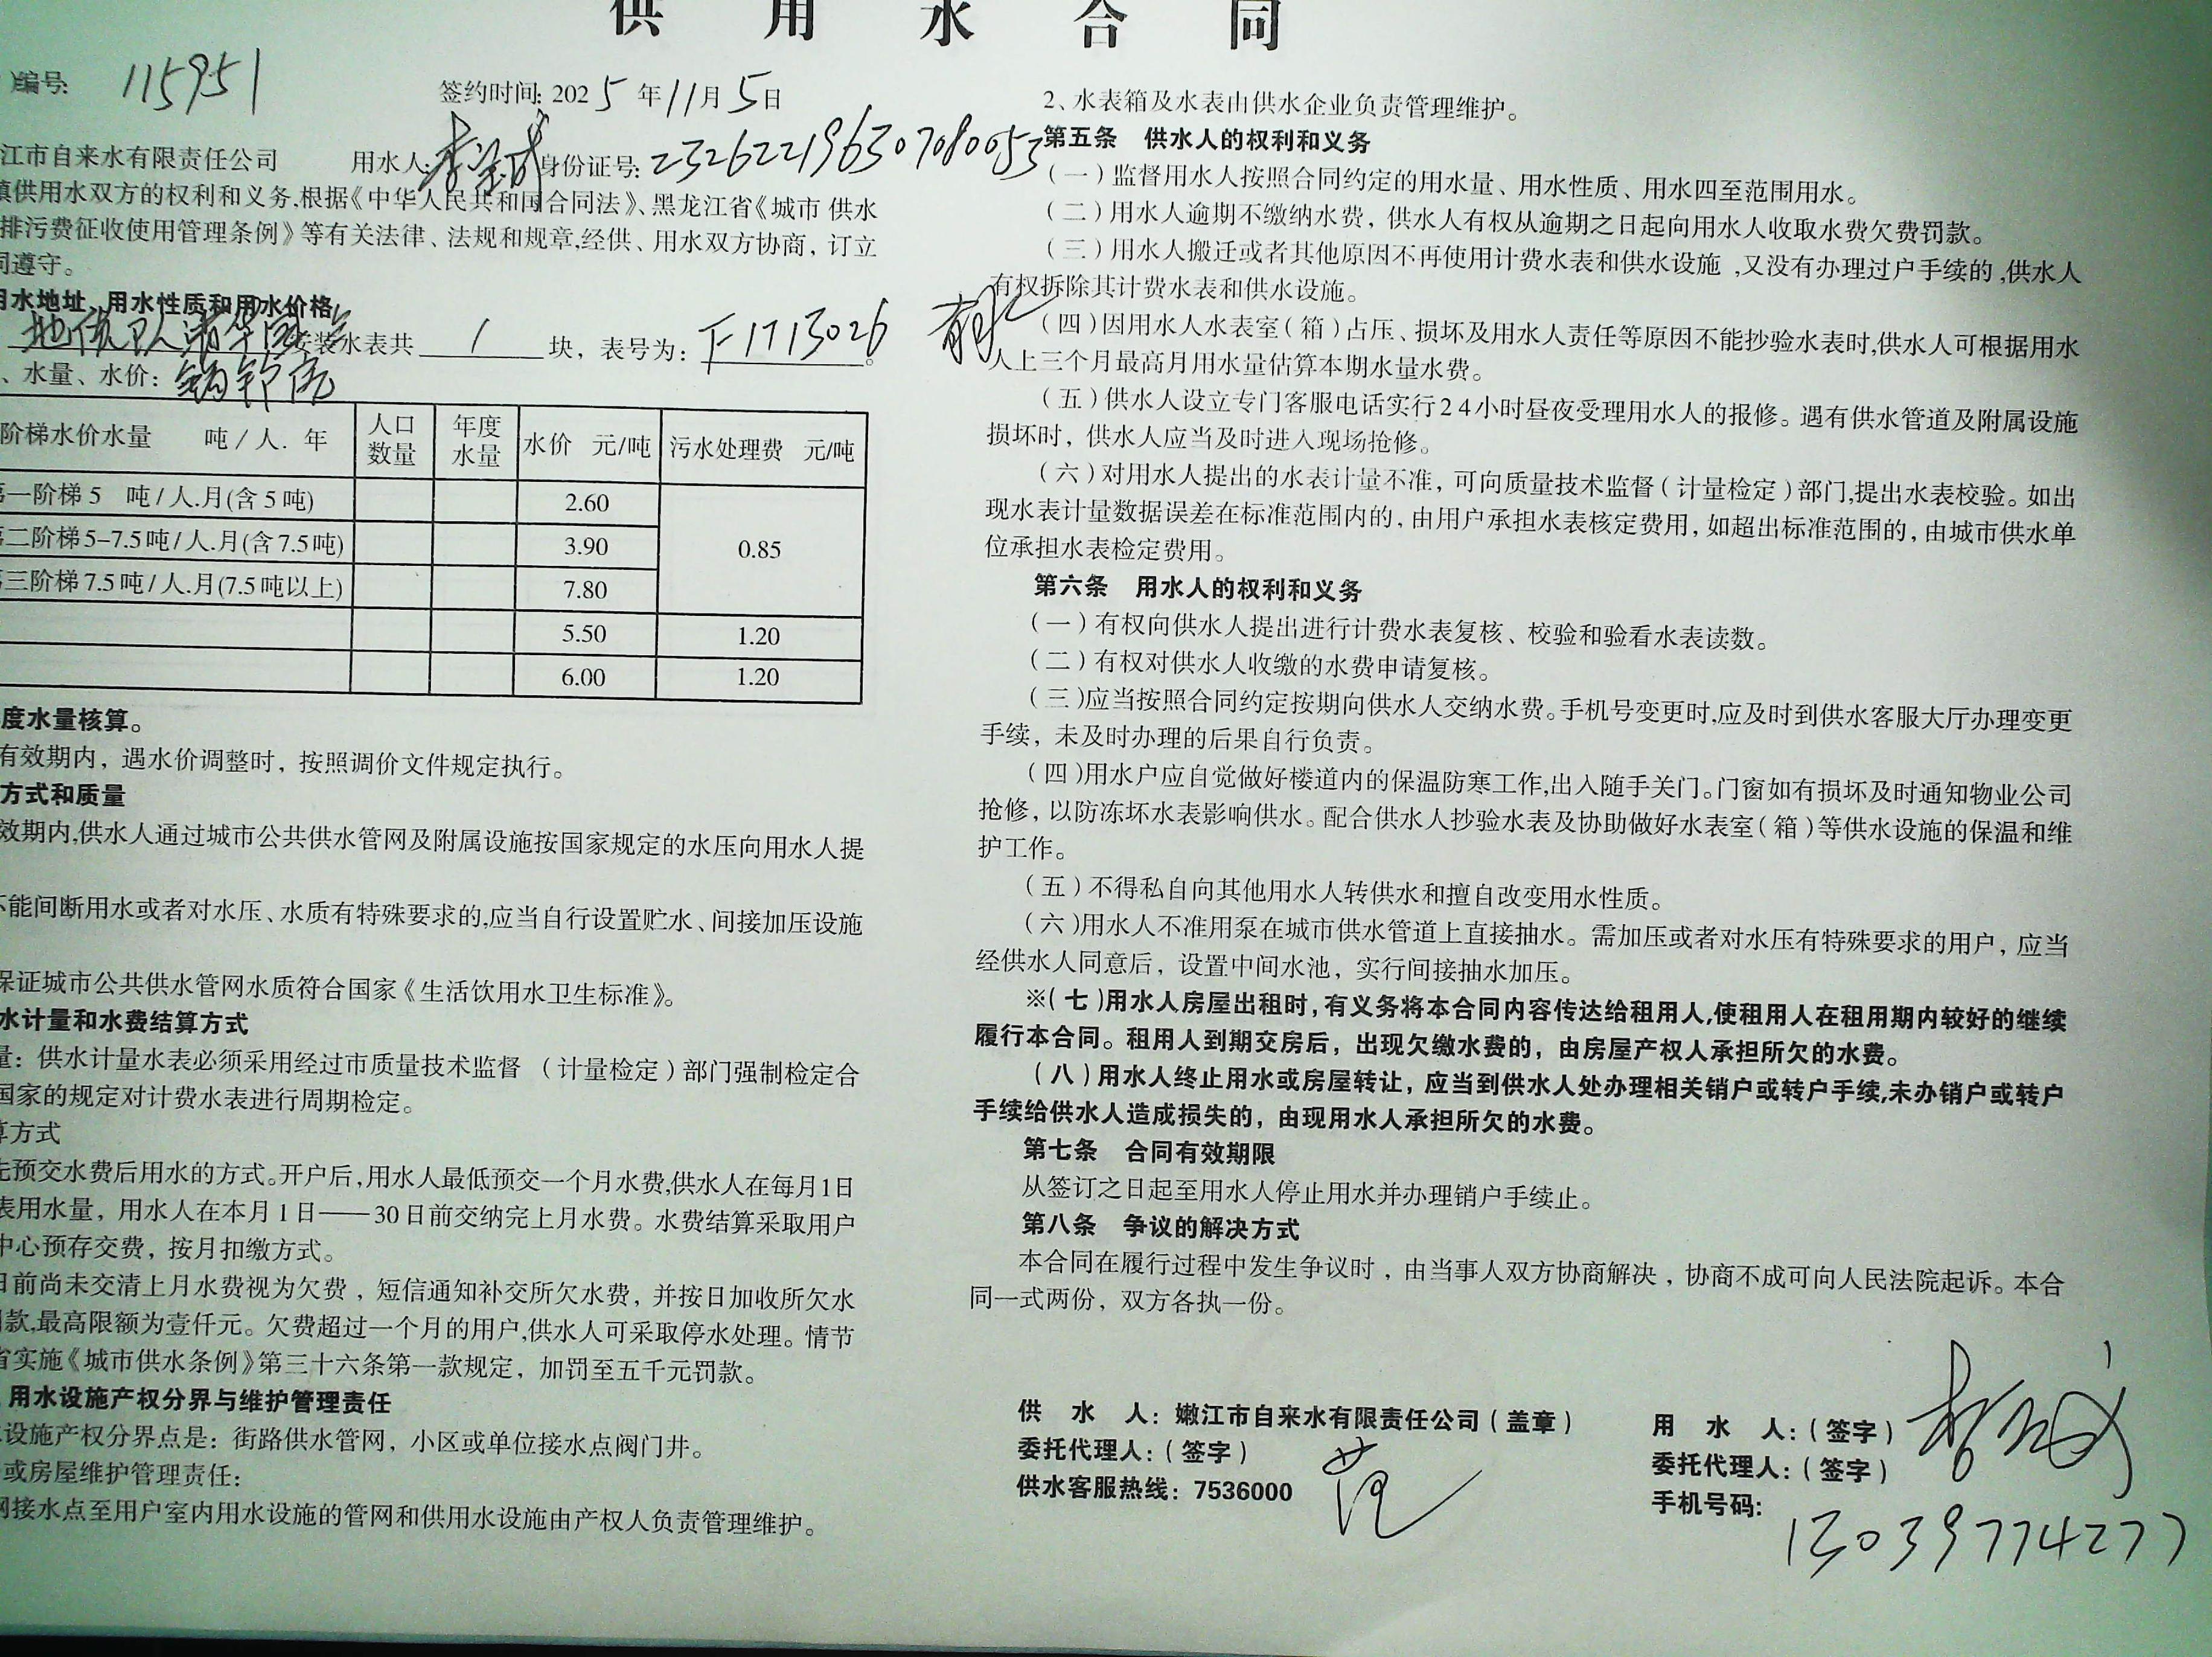 供 用 水 合 同
编号: 115951
签约时间: 2025年11月5日
江市自来水有限责任公司 用水人: 身份证号: 232622196307080053
供用水双方的权利和义务,根据《中华人民共和国合同法》、黑龙江省《城市 供水
排污费征收使用管理条例》等有关法律、法规和规章,经供、用水双方协商, 订立
同遵守。
用水地址、用水性质和用水价格
地 队清华园 安装水表共 1 块, 表号为: F1713026。
、水量、水价:
阶梯水价水量 吨/人. 年 人口数量 年度水量 水价 元/吨 污水处理费 元/吨
第一阶梯 5 吨/人.月(含 5 吨) 2.60 0.85
第二阶梯 5-7.5吨/人.月(含 7.5 吨) 3.90
第三阶梯 7.5 吨/人.月(7.5 吨以上) 7.80
5.50 1.20
6.00 1.20
度水量核算。
有效期内, 遇水价调整时, 按照调价文件规定执行。
方式和质量
效期内,供水人通过城市公共供水管网及附属设施按国家规定的水压向用水人提
不能间断用水或者对水压、水质有特殊要求的,应当自行设置贮水、间接加压设施
保证城市公共供水管网水质符合国家《生活饮用水卫生标准》。
水计量和水费结算方式
量: 供水计量水表必须采用经过市质量技术监督 (计量检定)部门强制检定合
国家的规定对计费水表进行周期检定。
算方式
先预交水费后用水的方式。开户后,用水人最低预交一个月水费,供水人在每月1日
表用水量, 用水人在本月 1 日——30 日前交纳完上月水费。水费结算采取用户
中心预存交费, 按月扣缴方式。
日前尚未交清上月水费视为欠费, 短信通知补交所欠水费, 并按日加收所欠水
罚款,最高限额为壹仟元。欠费超过一个月的用户,供水人可采取停水处理。情节
省实施《城市供水条例》第三十六条第一款规定, 加罚至五千元罚款。
用水设施产权分界与维护管理责任
设施产权分界点是: 街路供水管网, 小区或单位接水点阀门井。
或房屋维护管理责任:
网接水点至用户室内用水设施的管网和供用水设施由产权人负责管理维护。
2、水表箱及水表由供水企业负责管理维护。
第五条 供水人的权利和义务
(一)监督用水人按照合同约定的用水量、用水性质、用水四至范围用水。
(二)用水人逾期不缴纳水费, 供水人有权从逾期之日起向用水人收取水费欠费罚款。
(三)用水人搬迁或者其他原因不再使用计费水表和供水设施,又没有办理过户手续的,供水人
有权拆除其计费水表和供水设施。
(四)因用水人水表室(箱)占压、损坏及用水人责任等原因不能抄验水表时,供水人可根据用水
人上三个月最高月用水量估算本期水量水费。
(五)供水人设立专门客服电话实行24小时昼夜受理用水人的报修。遇有供水管道及附属设施
损坏时, 供水人应当及时进入现场抢修。
(六)对用水人提出的水表计量不准, 可向质量技术监督(计量检定)部门,提出水表校验。如出
现水表计量数据误差在标准范围内的, 由用户承担水表核定费用, 如超出标准范围的, 由城市供水单
位承担水表检定费用。
第六条 用水人的权利和义务
(一)有权向供水人提出进行计费水表复核、校验和验看水表读数。
(二)有权对供水人收缴的水费申请复核。
(三)应当按照合同约定按期向供水人交纳水费。手机号变更时,应及时到供水客服大厅办理变更
手续, 未及时办理的后果自行负责。
(四)用水户应自觉做好楼道内的保温防寒工作,出入随手关门。门窗如有损坏及时通知物业公司
抢修, 以防冻坏水表影响供水。配合供水人抄验水表及协助做好水表室(箱)等供水设施的保温和维
护工作。
(五)不得私自向其他用水人转供水和擅自改变用水性质。
(六)用水人不准用泵在城市供水管道上直接抽水。需加压或者对水压有特殊要求的用户, 应当
经供水人同意后, 设置中间水池, 实行间接抽水加压。
※(七)用水人房屋出租时, 有义务将本合同内容传达给租用人,使租用人在租用期内较好的继续
履行本合同。租用人到期交房后, 出现欠缴水费的, 由房屋产权人承担所欠的水费。
(八)用水人终止用水或房屋转让, 应当到供水人处办理相关销户或转户手续,未办销户或转户
手续给供水人造成损失的, 由现用水人承担所欠的水费。
第七条 合同有效期限
从签订之日起至用水人停止用水并办理销户手续止。
第八条 争议的解决方式
本合同在履行过程中发生争议时, 由当事人双方协商解决, 协商不成可向人民法院起诉。本合
同一式两份, 双方各执一份。
供 水 人: 嫩江市自来水有限责任公司(盖章)
委托代理人:(签字) 范
供水客服热线: 7536000
用 水 人:(签字)
委托代理人:(签字)
手机号码:
13039774277